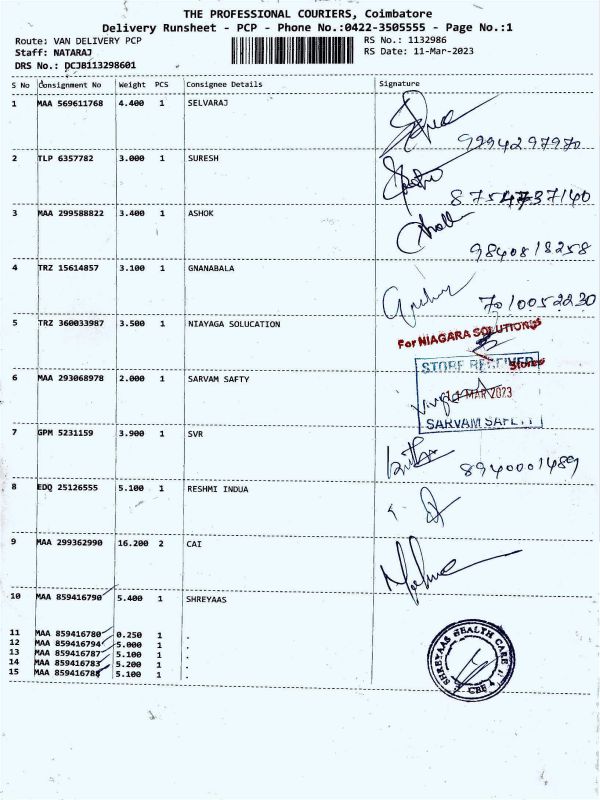 THE PROFESSIONAL COURIERS, Coimbatore
Delivery Runsheet - PCP - Phone No.:0422-3505555 - Page No.:1
Route: VAN DELIVERY PCP RS No.: 1132986
Staff: NATARAJ RS Date: 11-Mar-2023
DRS No.: DCJB113298601
S No Consignment No Weight PCS Consignee Details Signature
1 MAA 569611768 4.400 1 SELVARAJ
9994297970
2 TLP 6357782 3.000 1 SURESH
8754737140
3 MAA 299588822 3.400 1 ASHOK
9840818258
4 TRZ 15614857 3.100 1 GNANABALA
7010052230
5 TRZ 360033987 3.500 1 NIAYAGA SOLUCATION
For NIAGARA SOLUTIONS
Stores
STORE RECEIVED
6 MAA 293068978 2.000 1 SARVAM SAFTY
11 MAR 2023
SARVAM SAFETY
7 GPM 5231159 3.900 1 SVR
8940001489
8 EDQ 25126555 5.100 1 RESHMI INDUA
9 MAA 299362990 16.200 2 CAI
10 MAA 859416790 5.400 1 SHREYAAS
11 MAA 859416780 0.250 1 .
12 MAA 859416794 5.000 1 .
13 MAA 859416787 5.100 1 .
14 MAA 859416783 5.200 1 .
15 MAA 859416788 5.100 1 .
SHREYAAS HEALTH CARE
CBE